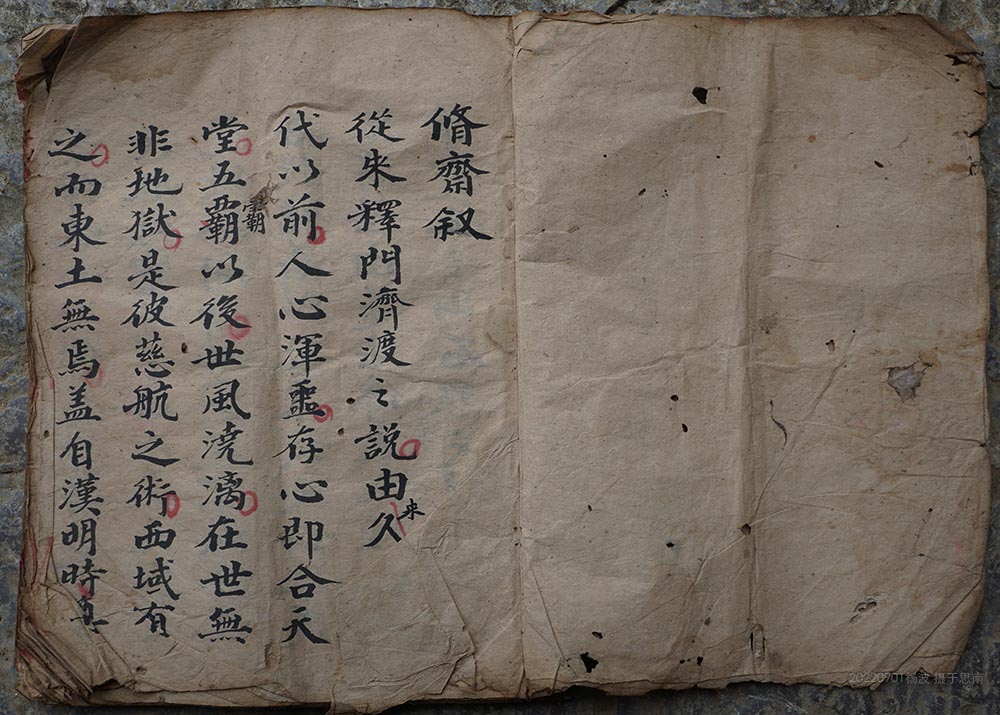 脩齋叙
從来釋門濟渡之説由来久
代以前人心渾噩存心即合天
堂五覇以後世風澆漓在世無
非地獄是彼慈航之術西域有
之而東土無焉盖自漢明時
20220901杨波 摄于思南